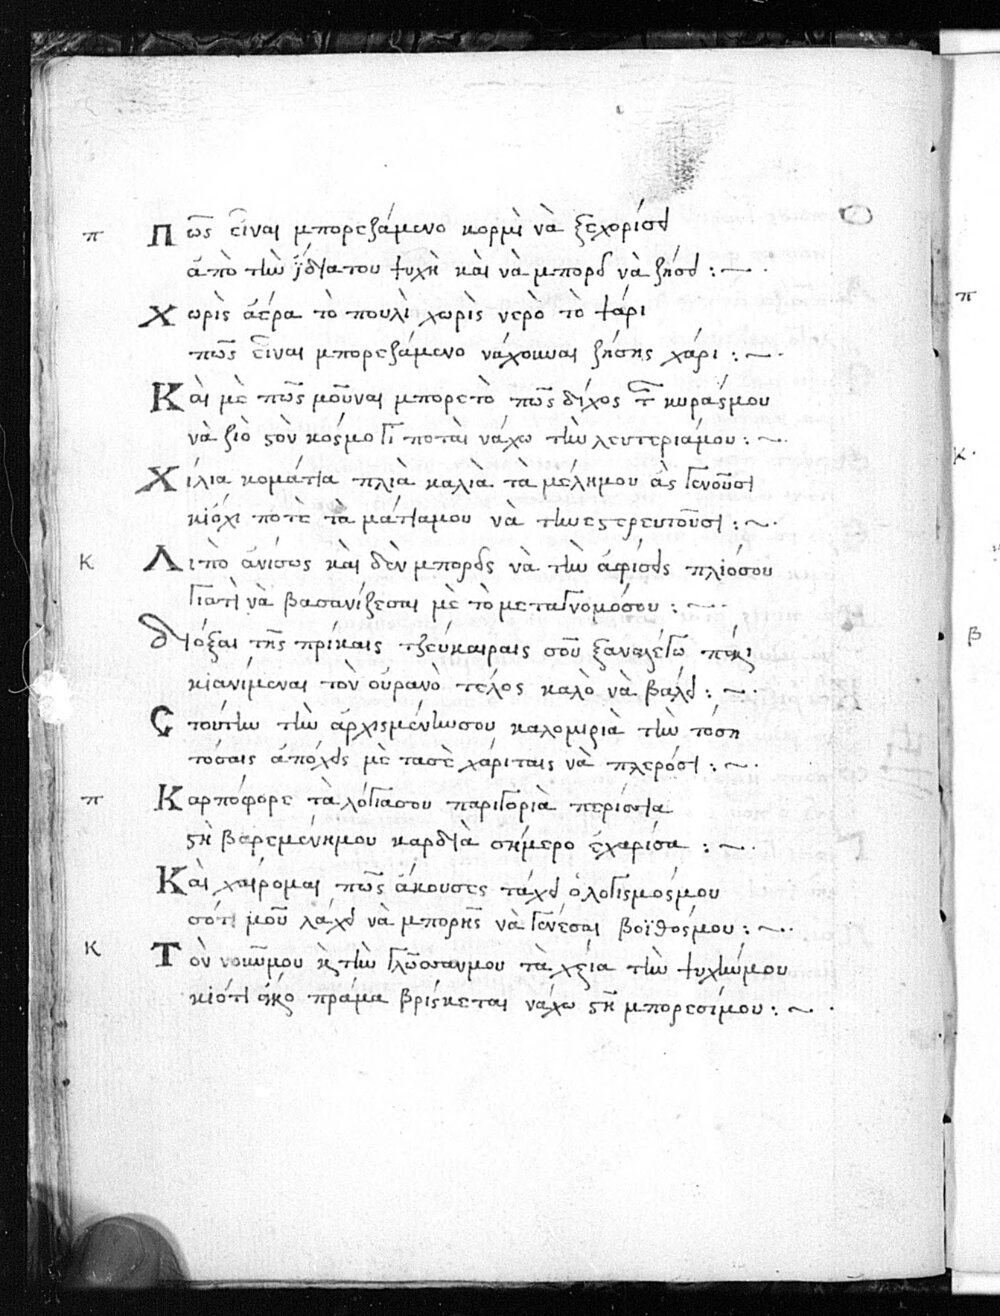 π Πῶς εἶναι μπορεζάμενο κορμὶ νὰ ξεχορίσει
ἀπὸ τὴν ἴδια του ψυχὴ καὶ νὰ μπορεῖ νὰ ζήσει :~
Χωρὶς ἀέρα τὸ πουλὶ χωρὶς νερὸ τὸ ψάρι
πῶς εἶναι μπορεζάμενο νάχουναι ζήσης χάρι :~
Καὶ μὲ πῶς μοῦναι μπορετὸ πῶς δίχος τῆς κυράςμου
νὰ ζιὸ ςὸν κόσμο γῆ ποταὶ νάχω τὴν λευτεριάμου :~
Χίλια κομάτια πλιὰ καλιὰ τὰ μέλημου ἂς γενοῦσι
κιόχι ποτὲ τὰ μάτιαμου νὰ τὴν εςερευτοῦσι :~
Κ Λιπὸ ἀνίσως καὶ δὲν μπορεῖς νὰ τὴν ἀφίσεις πλιόσου
γιατὶ νὰ βασανίζεσαι μὲ τὸ μεταγνομόσου :~
Διόξαι τῆς πρίκαις τζεύκαιραις σοῦ ξαναλέγω πέκι
κιανίμεναι τὸν οὐρανὸ τέλος καλὸ νὰ βάλει :~
Στούτην τὴν ἀρχιςμένηνσου καλομιριὰ τὴν τόση
τόσαις ἀπόχεις μὲ τασὲ χάριταις νὰ πλερόσι :~
π Καρπόφορε τὰ λόγιασου παριγοριὰ περίσια
ςὴ βαρεμένημου καρδιὰ σήμερο ἐχαρίσα :~
Καὶ χαίρομαι πῶς ἄκουσες τάχει ὁ λογισμόςμου
σότι μοῦ λάχει νὰ μπορῆς νὰ γενέσαι βοϊθόςμου :~
Κ Τὸν νοῦμου κ τὴν γλῶσσανμου τὰ χέια τὴν ψυχήνμου
κιότι ὀκο πράμα βρίσκεται νάχω ςὴ μπορεσίμου :~
π
κ
β